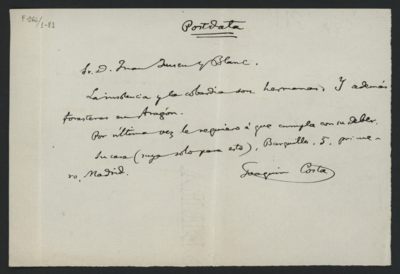 F-262/
1-83
Postdata
Sr. D. Juan y Blanc.
La insolencia y la cobardia son hermanas, y además
forasteras en Aragón.
Por última vez le requiero á que cumpla con su deber.
Su casa (suya solo para esto), Barquillo, 5, prime-
ro, Madrid.
Joaquín Costa